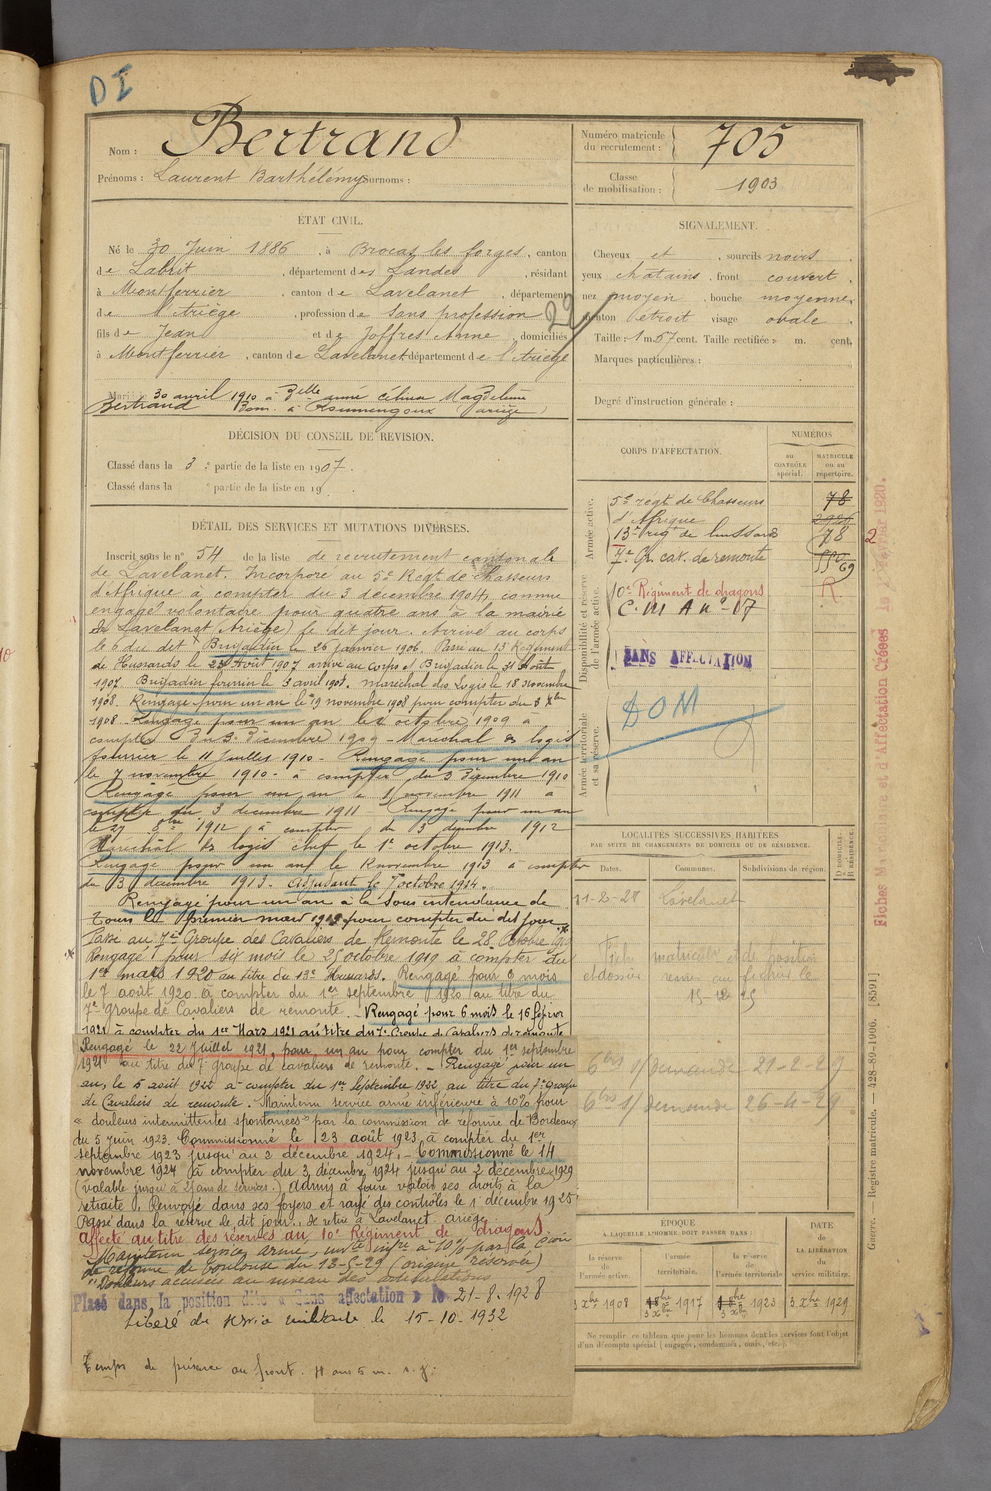 DI
Nom : Bertrand
Prénoms : Laurent Barthélémy Surnoms :
Numéro matricule du recrutement : 705
Classe de mobilisation : 1903
ÉTAT CIVIL.
Né le 30 Juin 1886, à Brocas les forges, canton
de Labrit, département des Landes, résidant
à Montferrier, canton de Lavelanet, département
de l'Ariège, profession de Sans profession
fils de Jean et de Joffres Anne, domiciliés
à Montferrier, canton de Lavelanet département de l'Ariège
22
Marié 30 avril 1910 à Delle Célina Magdeleine
Bertrand dom. à Roumengoux (Ariège)
SIGNALEMENT.
Cheveux et, sourcils noirs.
yeux chatains, front couvert.
nez moyen, bouche moyenne,
menton étroit visage ovale.
Taille : 1 m. 67 cent. Taille rectifiée : m. cent.
Marques particulières :
Degré d'instruction générale :
DÉCISION DU CONSEIL DE REVISION.
Classé dans la 3e partie de la liste en 1907.
Classé dans la e partie de la liste en 19
DÉTAIL DES SERVICES ET MUTATIONS DIVERSES.
Inscrit sous le n° 54 de la liste de recrutement cantonale
de Lavelanet. Incorporé au 5e Regt de Chasseurs
d'Afrique à compter du 3 décembre 1904, comme
engagé volontaire pour quatre ans à la mairie
de Lavelanet (Ariège) le dit jour. Arrivé au corps
le 6 du dit Brigadier le 26 janvier 1906. Passé au 13e Régiment
de Hussards le 23 Août 1907 arrivé au Corps et Brigadier le 31 Août
1907. Brigadier fourrier le 3 avril 1908. Maréchal des Logis le 18 novembre
1908. Rengagé pour un an le 19 novembre 1908 pour compter du 3 Xbre
1908. Rengagé pour un an le octobre 1909 à
compter du 3 Décembre 1909 - Maréchal des logis
fourrier le 11 Juillet 1910 - Rengagé pour un an
le 7 novembre 1910 - à compter du 3 Décembre 1910
Rengagé pour un an le novembre 1911 à
compter du 3 décembre 1911 - Rengagé pour un an
le 27 8bre 1912 à compter du 3 décembre 1912
Maréchal des logis chef le 1er octobre 1913.
Rengagé pour un an le novembre 1913 à compter
du 3 décembre 1913. Adjudant le 7 octobre 1914.
Rengagé pour un an à la Sous intendance de
Tours le premier mars 1919 pour compter du dit jour
Passé au 7e Groupe des Cavaliers de Remonte le 28 Octobre
Rengagé pour six mois le 25 octobre 1919 à compter du
1er mars 1920 au titre du 13e Hussards. Rengagé pour 6 mois
le 7 août 1920 à compter du 1er septembre 1920 au titre du
7e groupe de Cavaliers de remonte. - Rengagé pour 6 mois le 16 février
1921 à compter du 1er Mars 1921 au titre du 7e Groupe de Cavaliers de remonte
Rengagé le 22 Juillet 1921, pour un an pour compter du 1er septembre
1921 au titre du 7e groupe de cavaliers de remonte. - Rengagé pour un
an, le 5 août 1922 à compter du 1er Septembre 1922 au titre du 7e groupe
de Cavaliers de remonte. Maintenu service armé inférieure à 10% pour
« douleurs intermittentes spontanées » par la commission de réforme de Bordeaux
du 5 juin 1923. Commissionné le 23 août 1923 à compter du 1er
septembre 1923 jusqu'au 2 décembre 1924. - Commissionné le 14
novembre 1924 à compter du 3 décembre 1924 jusqu'au 2 décembre 1929
(valable jusqu'à 25 ans de services.) Admis à faire valoir ses droits à la
retraite. Renvoyé dans ses foyers et rayé des contrôles le 1er décembre 1925
Passé dans la réserve le dit jour. Se retire à Lavelanet Ariège.
Affecté au titre des réserves au 10e Régiment de dragons.
Maintenu service armé, invté infre à 10% par la Con
de réforme de Toulouse du 13-5-29 (origine réservée)
"Douleurs accusées au niveau des articulations
Placé dans la position dite « Sans affectation » le 21-8-1928
Libéré du service militaire le 15-10-1932
Temps de présence au front.
CORPS D'AFFECTATION.
NUMÉROS
AU CONTRÔLE spécial.
MATRICULE ou au répertoire.
Armée active.
5e regt de Chasseurs d'Afrique 78
13e regt de hussards 78
7e Gr. cav. de remonte
Disponibilité et réserve de l'armée active.
10e Régiment de dragons R.
C. M A n° 17
SANS AFFECTATION
Armée territoriale et sa réserve.
DOM
LOCALITÉS SUCCESSIVES HABITÉES
PAR SUITE DE CHANGEMENTS DE DOMICILE OU DE RÉSIDENCE.
Dates. Communes. Subdivisions de région. D DOMICILE. R RÉSIDENCE.
11-2-28 Lavelanet
Fiche matricule et de position
et dossier
6bis s/ demande 21-2-29
6bis s/ demande 26-4-29
ÉPOQUE
À LAQUELLE L'HOMME DOIT PASSER DANS :
la réserve de l'armée active.
l'armée territoriale.
la réserve de l'armée territoriale
DATE de LA LIBÉRATION du service militaire.
3 Xbre 1908
3 Xbre 1917
3 Xbre 1923
3 Xbre 1929
Ne remplir ce tableau que pour les hommes dont les services font l'objet
d'un décompte spécial (engagés, condamnés, omis, etc.).
Guerre. — Registre matricule. — 428-89-1906. [8591]